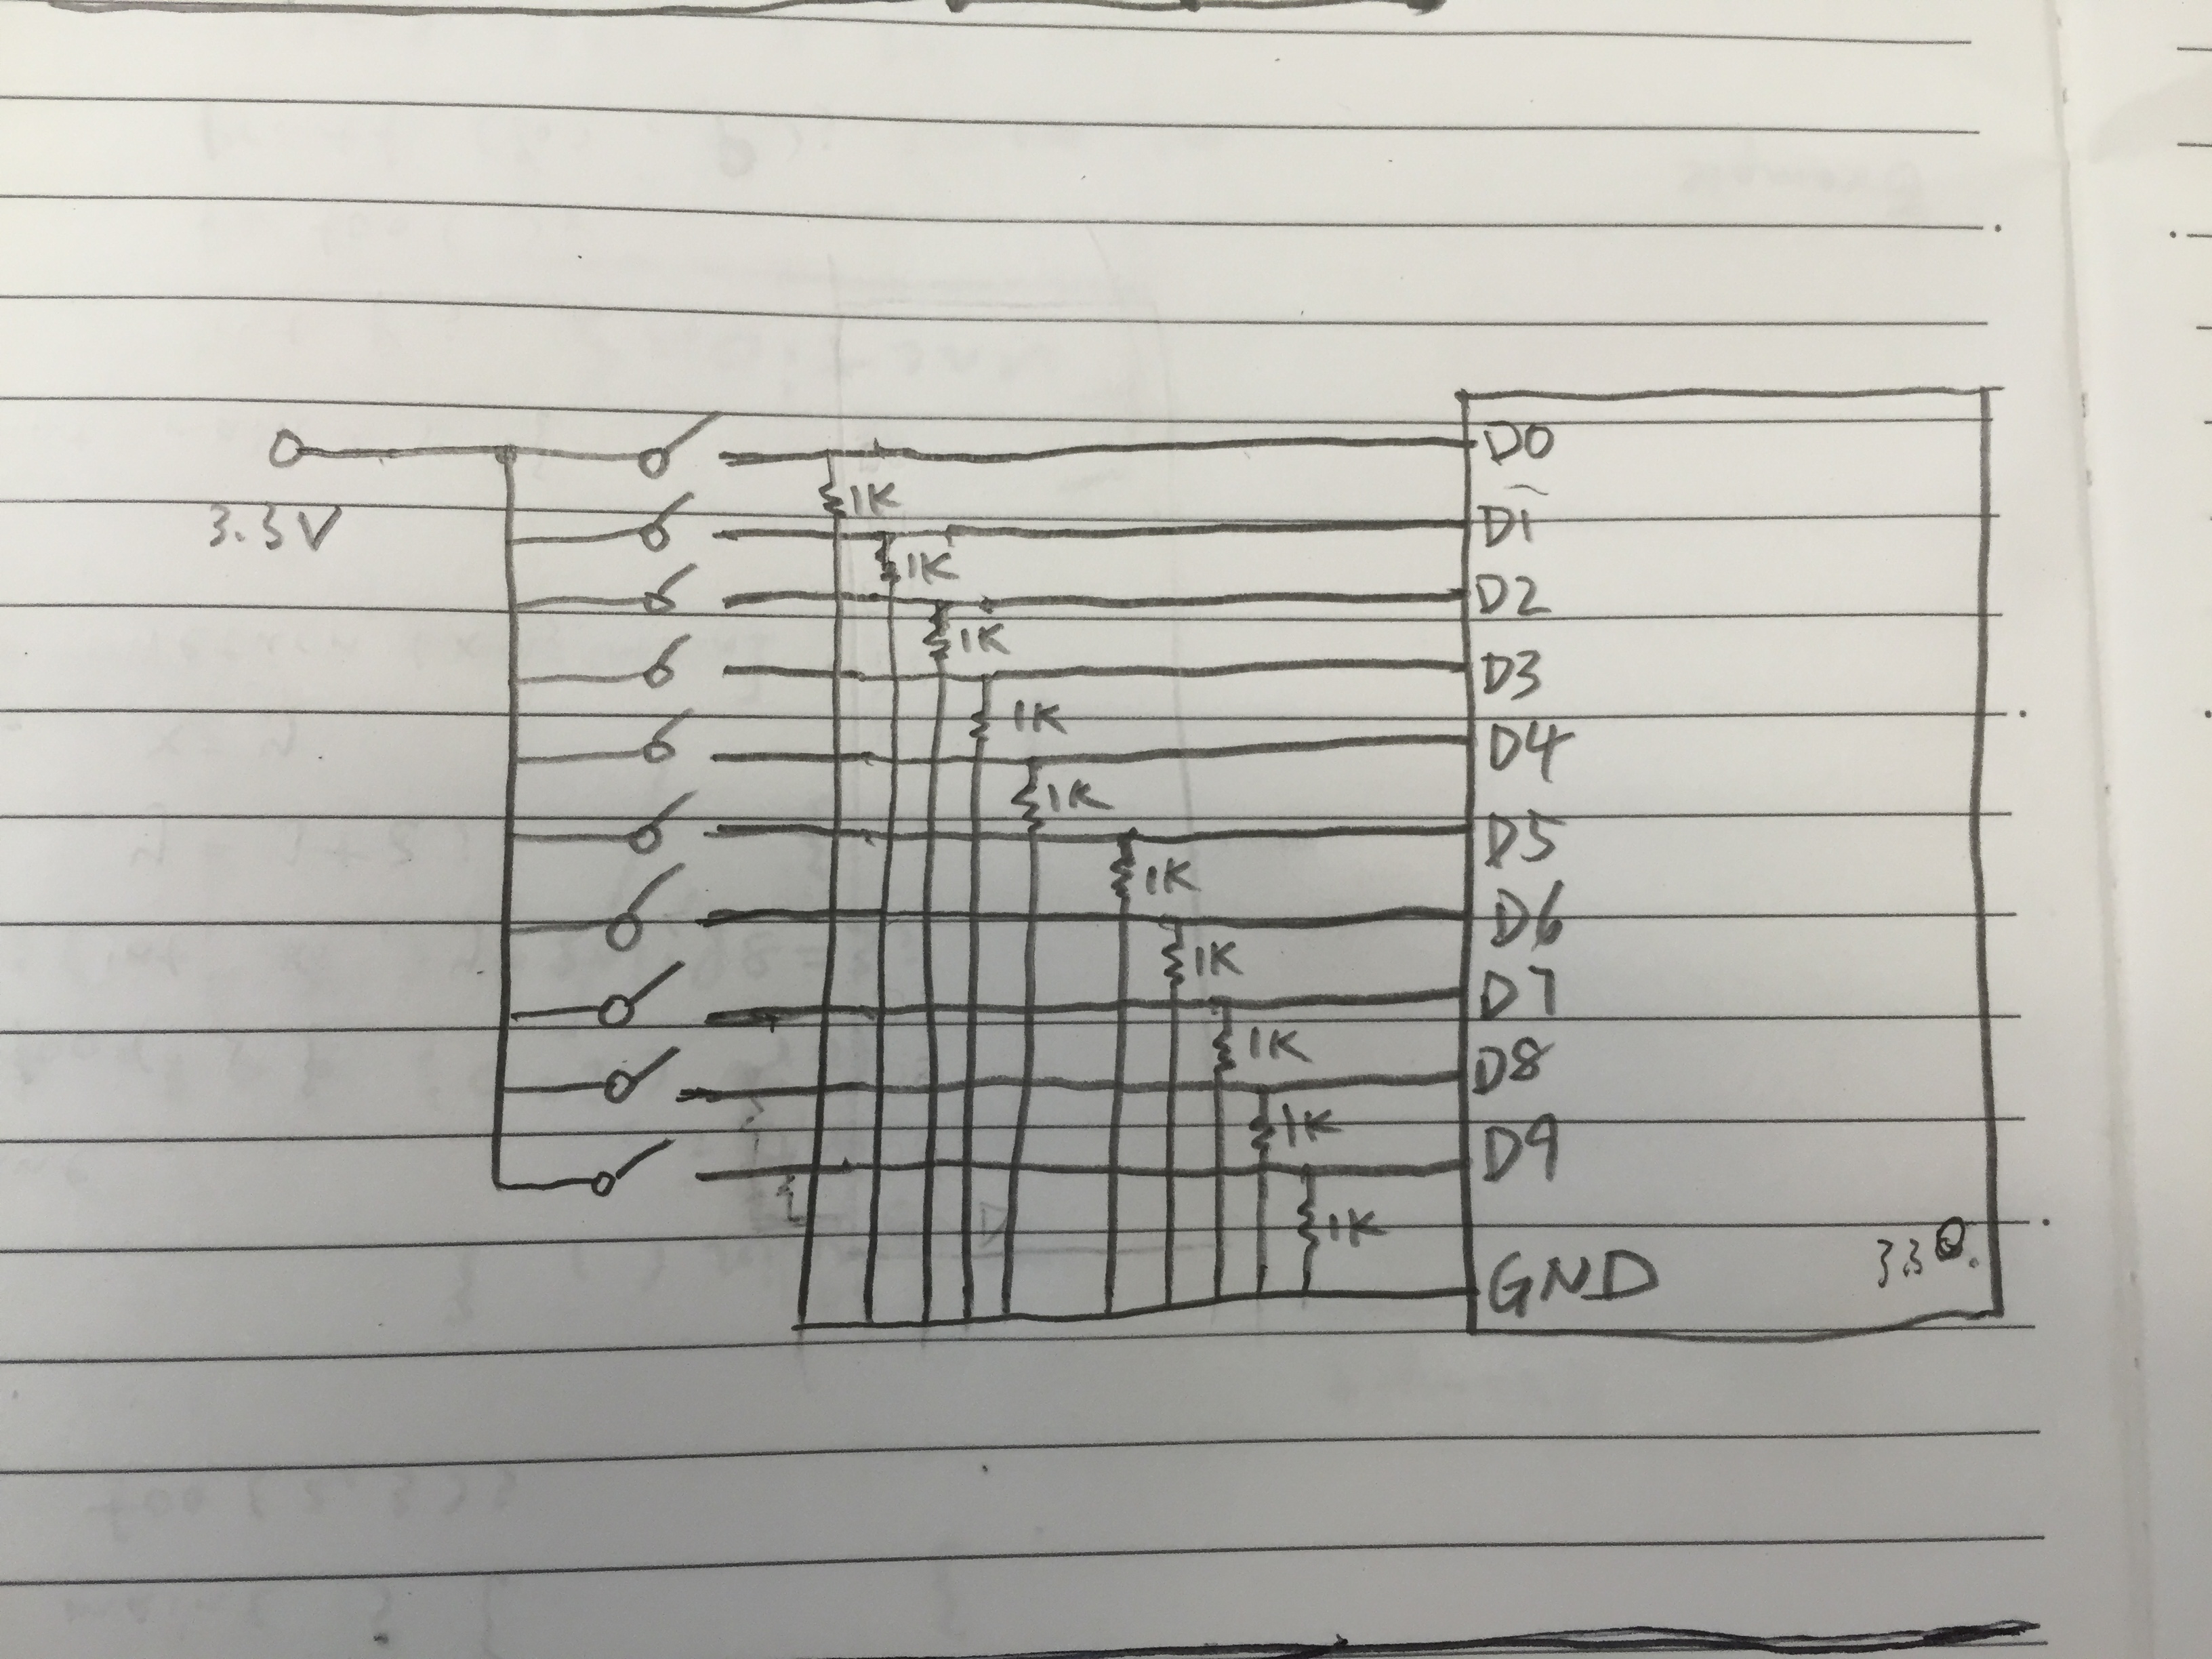 3.3V
1K
1K
1K
1K
1K
1K
1K
1K
1K
1K
D0
D1
D2
D3
D4
D5
D6
D7
D8
D9
GND